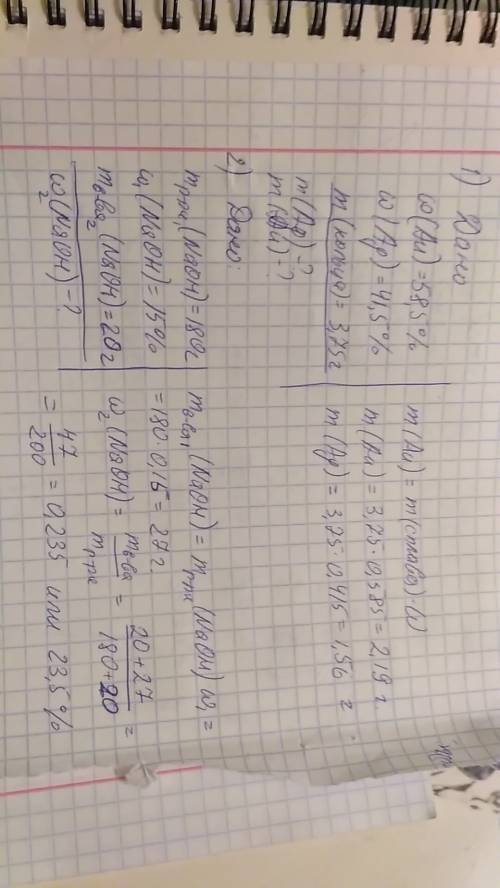 1) Дано
ω(Au) = 58,5%
ω(Ag) = 41,5%
m(кольца) = 3,75г
m(Ag) - ?
m(Au) - ?
m(Au) = m(сплава)·ω
m(Au) = 3,75·0,585 = 2,19 г
m(Ag) = 3,75·0,415 = 1,56 г
2) Дано:
mр-ра1 (NaOH) = 180г
ω1 (NaOH) = 15%
mв-ва2 (NaOH) = 20г
ω2 (NaOH) - ?
mв-ва1 (NaOH) = mр-ра (NaOH) ω1 =
= 180·0,15 = 27г
ω2 (NaOH) = mв-ва / mр-ра = 20+27 / 180+20 =
= 47/200 = 0,235 или 23,5%